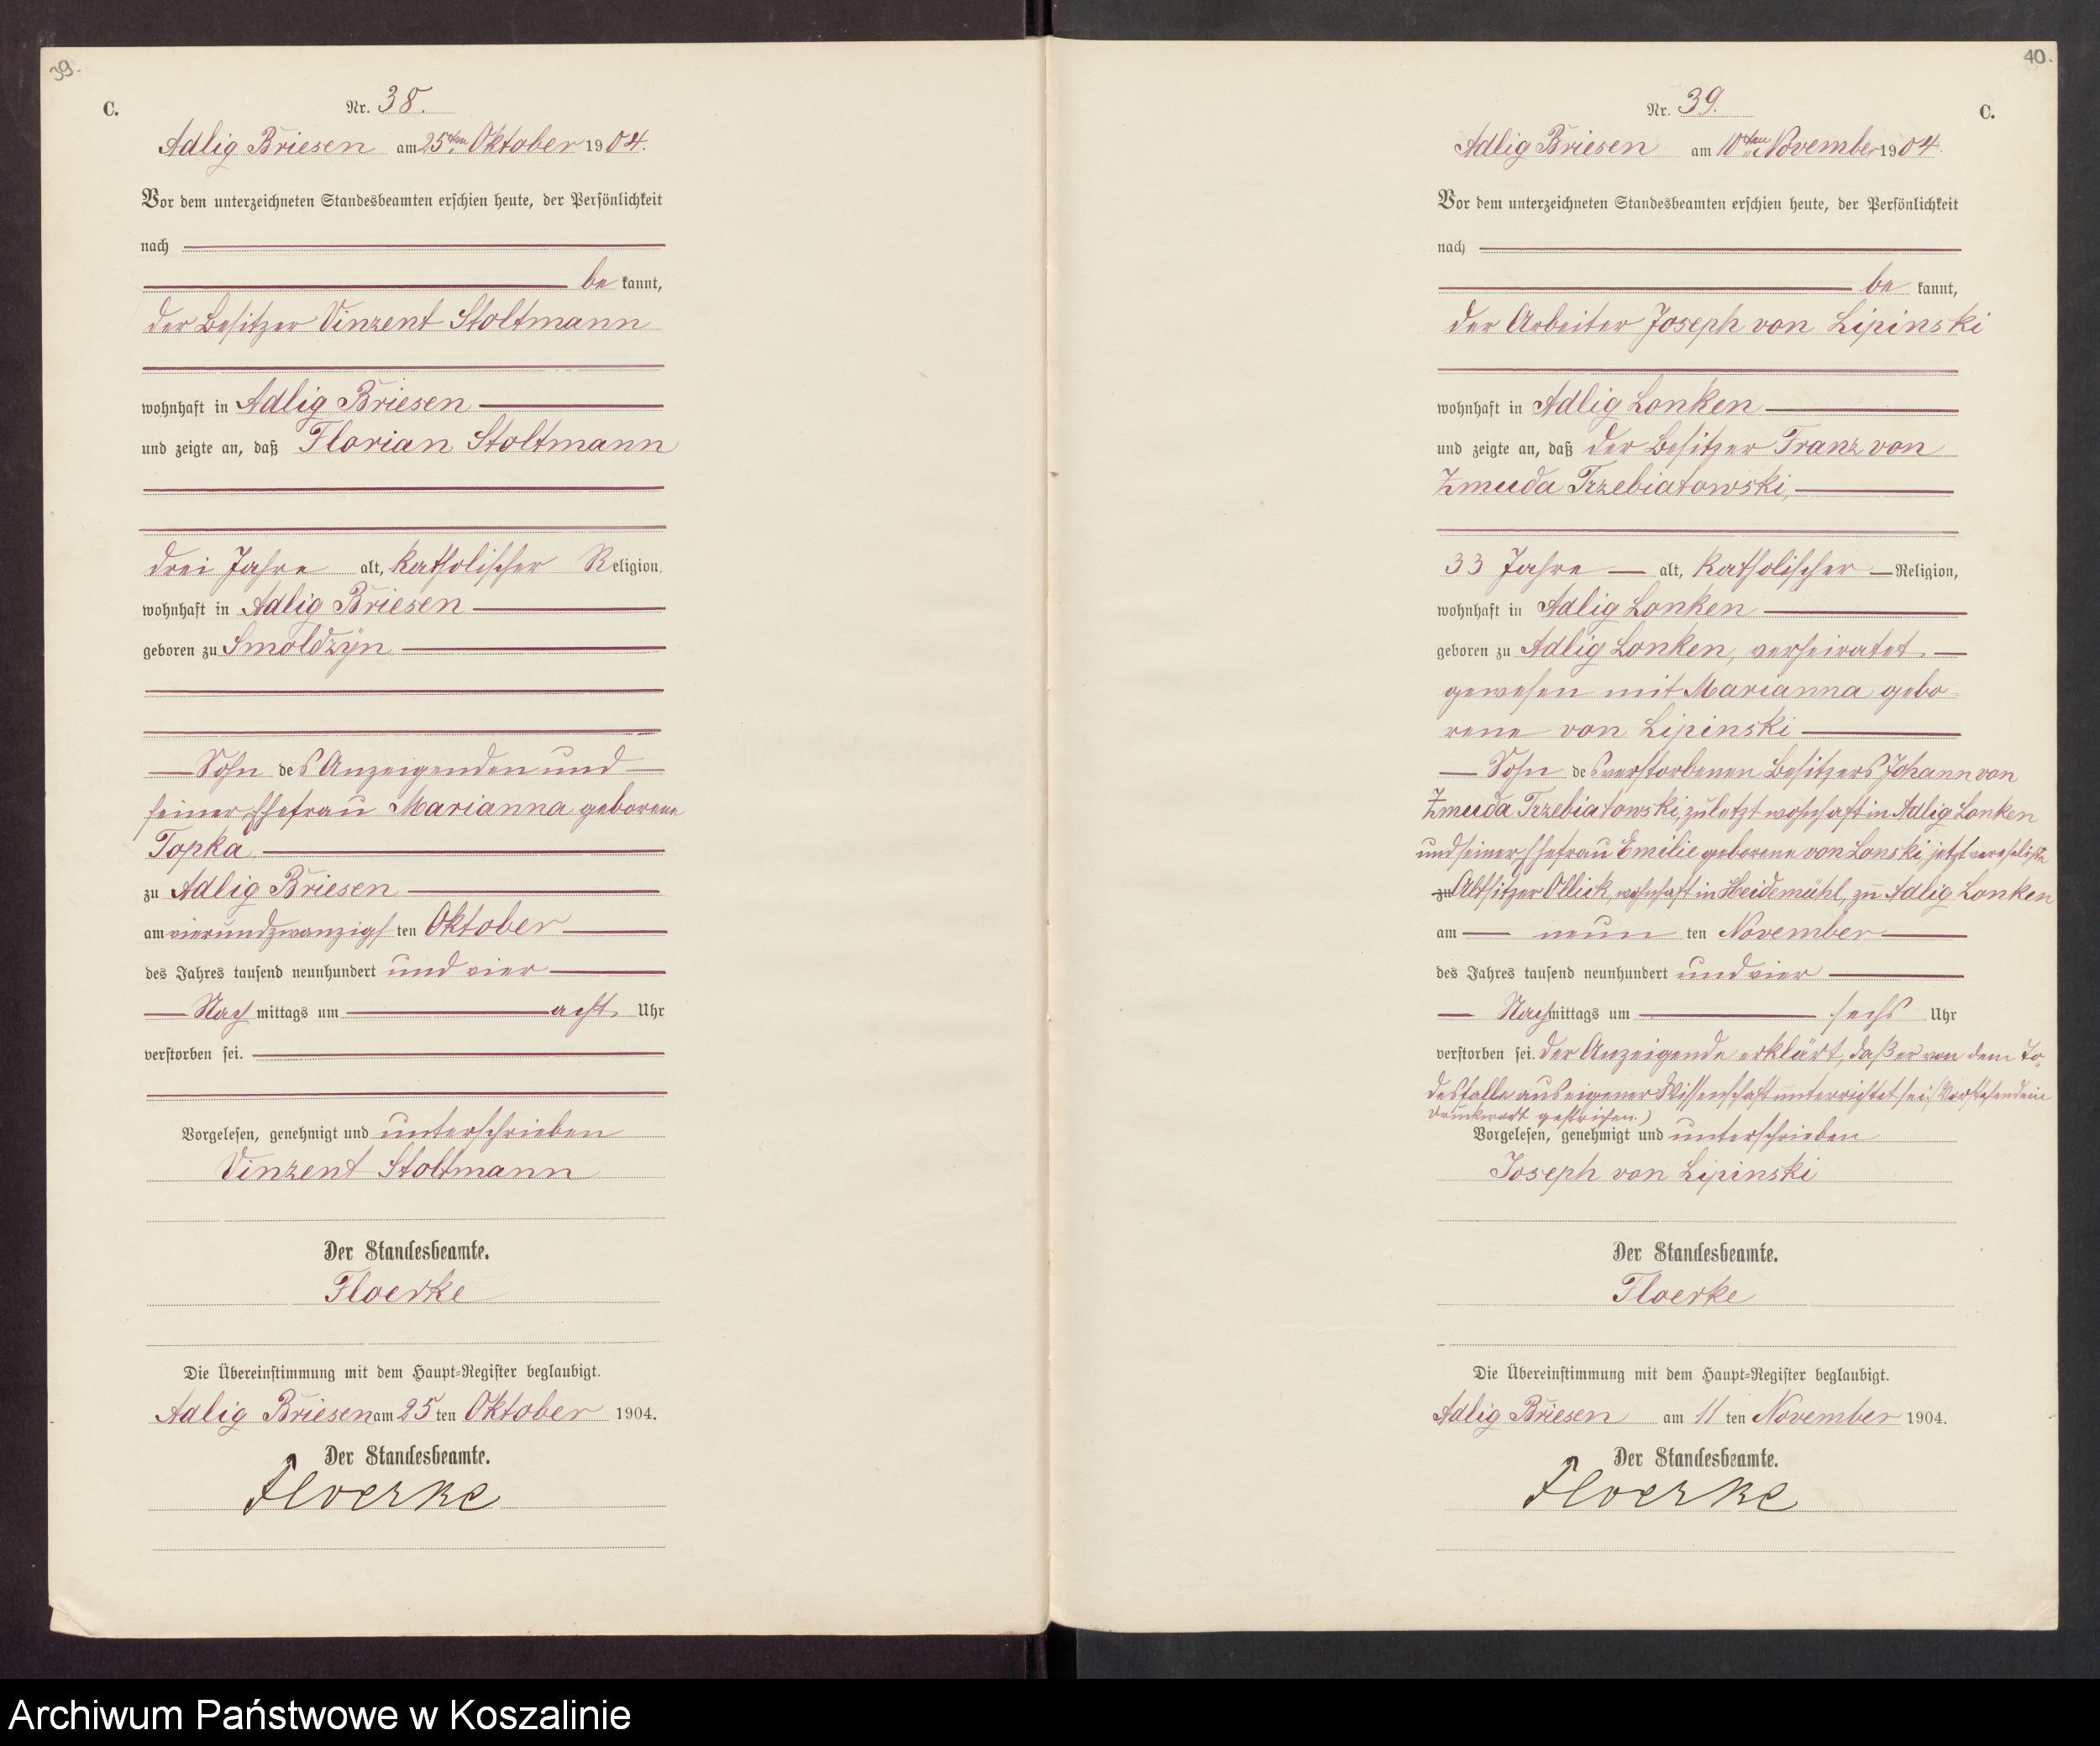 39.
C.
Nr. 38.
Adlig Briesen am 25ten Oktober 1904.
Vor dem unterzeichneten Standesbeamten erschien heute, der Persönlichkeit
nach
be kannt,
der Besitzer Vinzent Stoltmann
wohnhaft in Adlig Briesen
und zeigte an, daß Florian Stoltmann
drei Jahre alt, katholischer Religion,
wohnhaft in Adlig Briesen
geboren zu Smoldzyn
Sohn des Anzeigenden und
seiner Ehefrau Marianna geborene
Topka,
zu Adlig Briesen
am vierundzwanzigsten Oktober
des Jahres tausend neunhundert und vier
Nachmittags um acht Uhr
verstorben sei.
Vorgelesen, genehmigt und unterschrieben
Vinzent Stoltmann
Der Standesbeamte.
Floerke
Die Übereinstimmung mit dem Haupt-Register beglaubigt.
Adlig Briesen am 25 ten Oktober 1904.
Der Standesbeamte.
Floerke
40.
Nr. 39.
C.
Adlig Briesen am 10ten November 1904.
Vor dem unterzeichneten Standesbeamten erschien heute, der Persönlichkeit
nach
be kannt,
der Arbeiter Joseph von Lipinski
wohnhaft in Adlig Lonken
und zeigte an, daß der Besitzer Franz von
Zmuda Trzebiatowski,
33 Jahre alt, katholischer Religion,
wohnhaft in Adlig Lonken
geboren zu Adlig Lonken, verheiratet
gewesen mit Marianna gebo-
rene von Lipinski
Sohn des verstorbenen Besitzers Johann von
Zmuda Trzebiatowski, zuletzt wohnhaft in Adlig Lonken
und seiner Ehefrau Emilie geborene von Lonski, jetzt verehelichte
zu Altsitzer Ollick, wohnhaft in Heidemühl, zu Adlig Lonken
am neun ten November
des Jahres tausend neunhundert und vier
Nachmittags um sechs Uhr
verstorben sei. Der Anzeigende erklärt, daß er von dem To-
desfalle aus eigener Wissenschaft unterrichtet sei. (Vorstehend ein
Druckwort gestrichen.)
Vorgelesen, genehmigt und unterschrieben
Joseph von Lipinski
Der Standesbeamte.
Floerke
Die Übereinstimmung mit dem Haupt-Register beglaubigt.
Adlig Briesen am 11 ten November 1904.
Der Standesbeamte.
Floerke
Archiwum Państwowe w Koszalinie